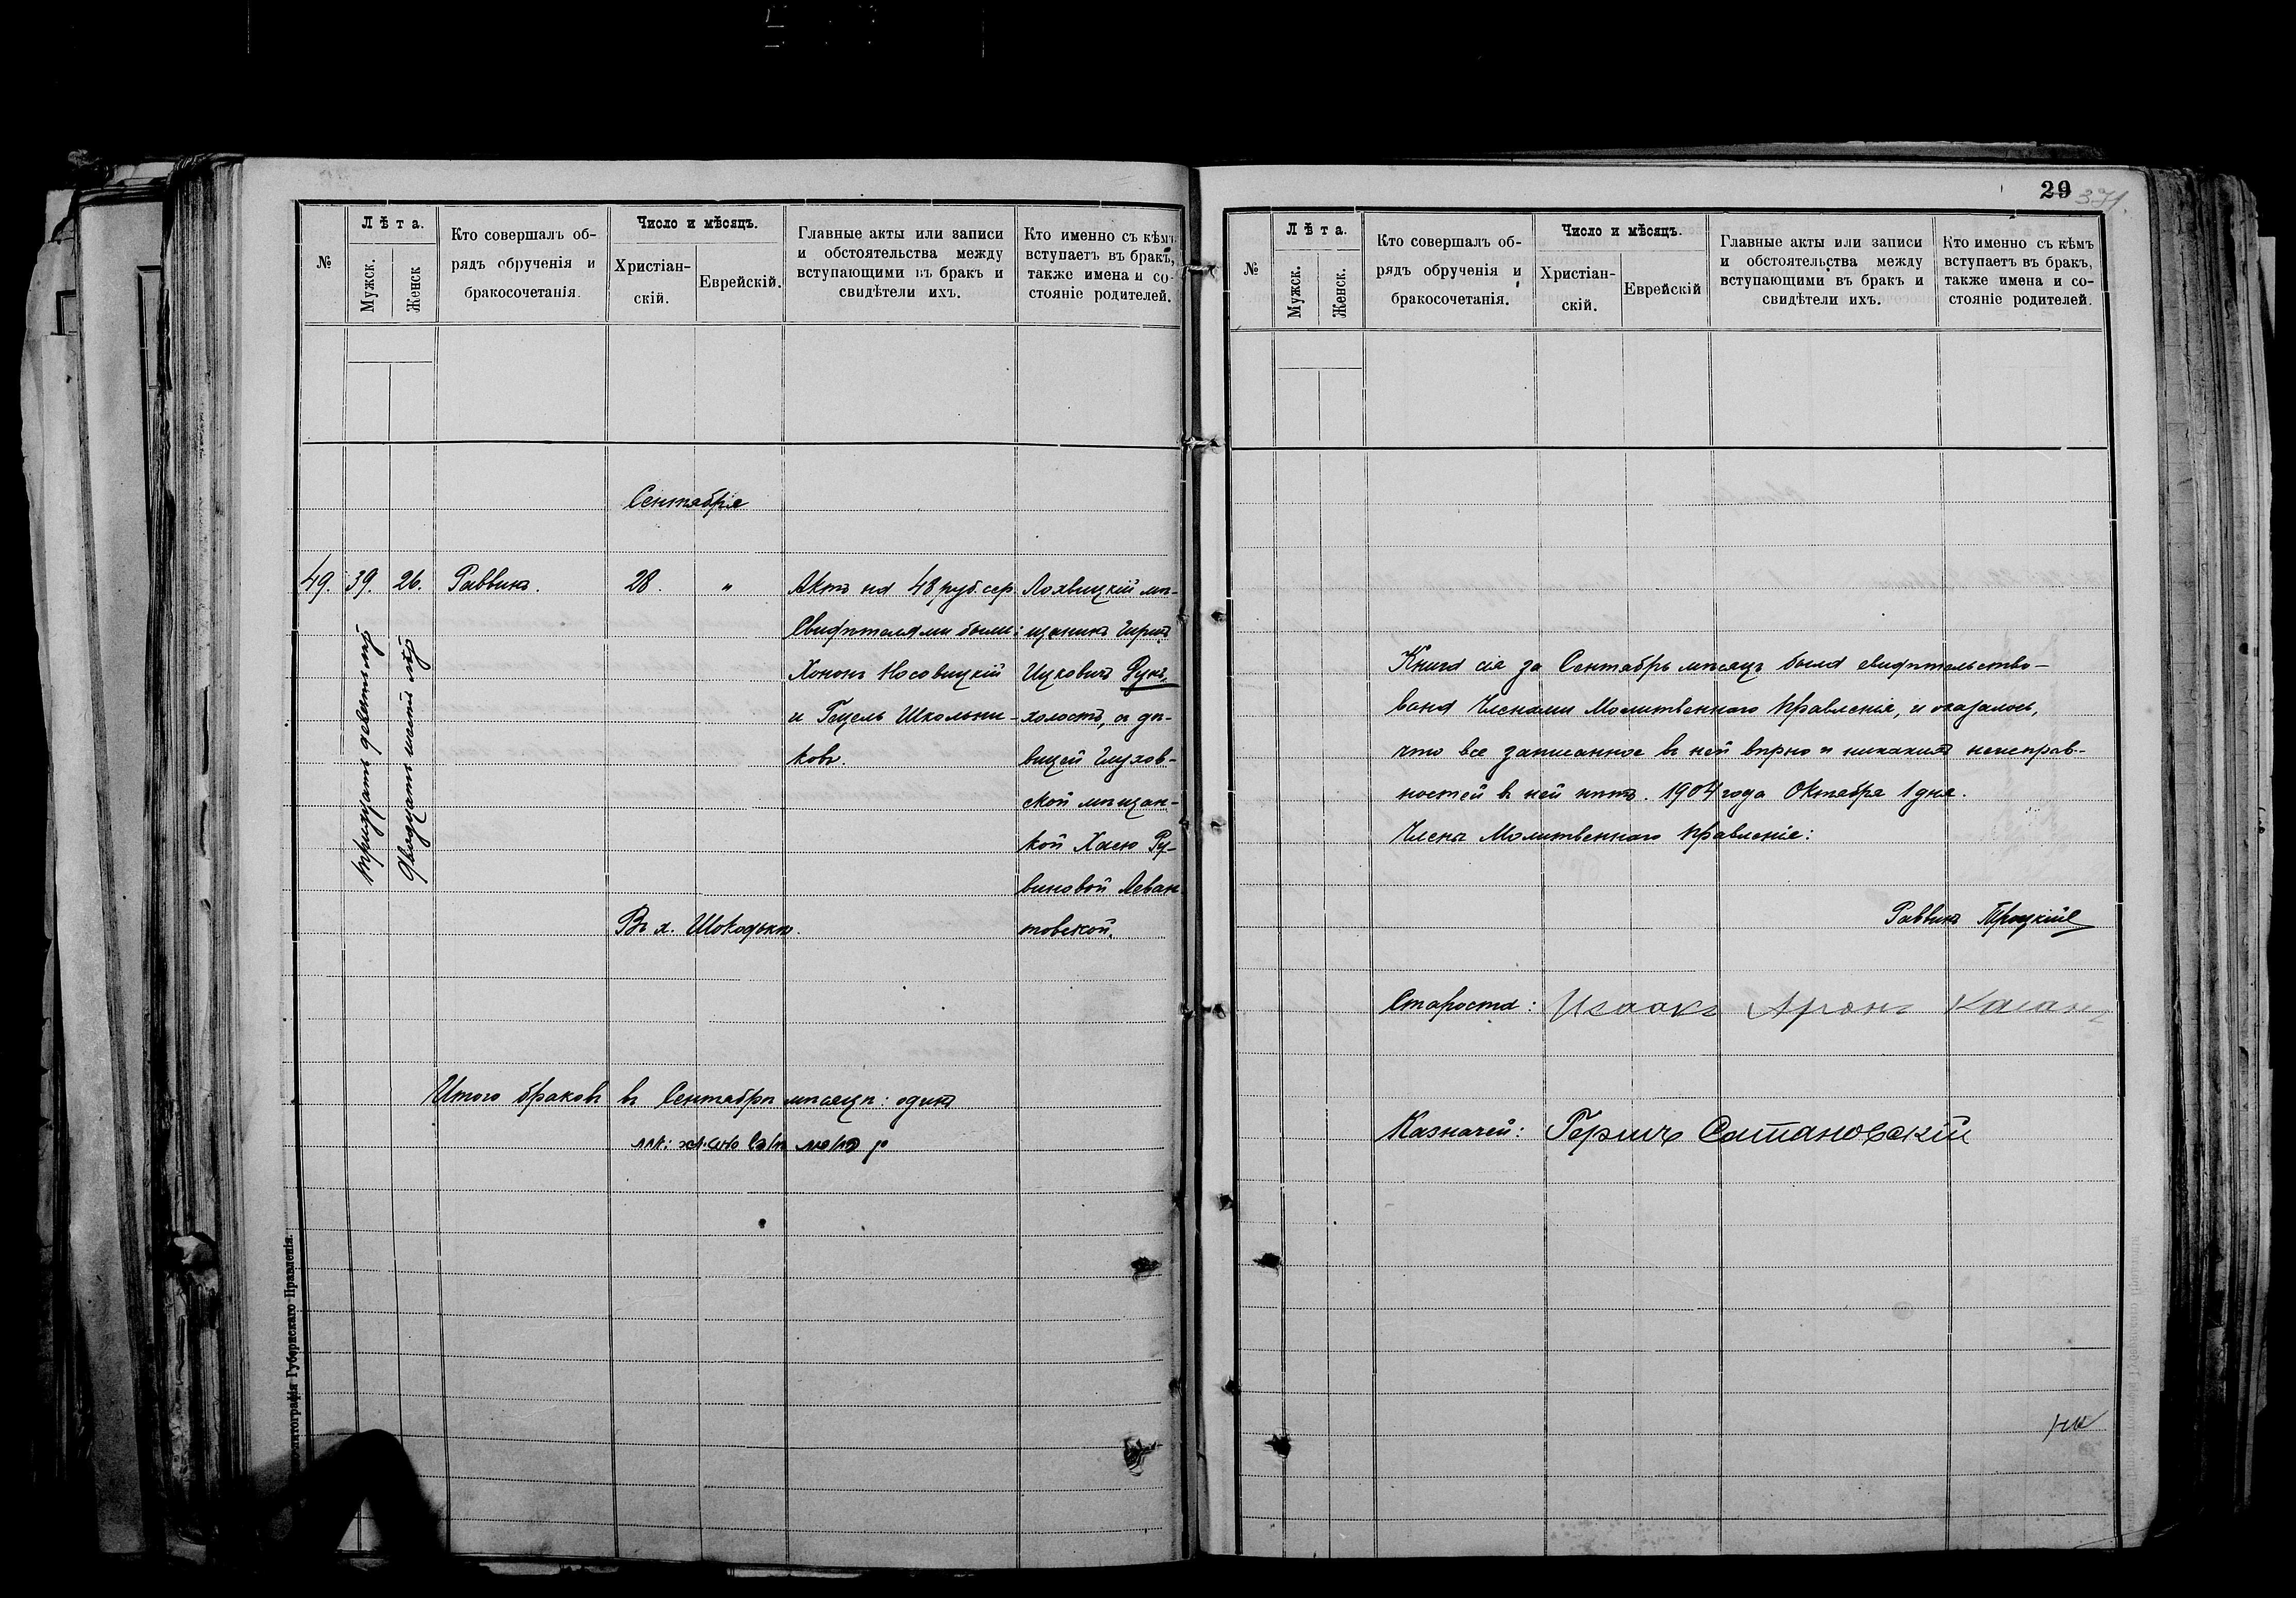 №
Лѣта.
Мужск.
Женск
Кто совершалъ об-
рядъ обрученія и
бракосочетанія.
Число и мѣсяцъ.
Христіан-
скій.
Еврейскій.
Главные акты или записи
и обстоятельства между
вступающими въ бракъ и
свидѣтели ихъ.
Кто именно съ кѣмъ
вступаетъ въ бракъ,
также имена и со-
стояніе родителей.
Сентября
49. 39. 26. Раввинъ. 28. "
тридцать девять лѣтъ
двадцать шесть лѣтъ
Актъ на 48 руб. сер.
Свидѣтелями были:
Хононъ Носовицкій
и Гецель Школьни-
ковъ.
Лохвицкій мѣ-
щанинъ Гиршъ
Ицковичъ
холостъ, съ дѣ-
вицей Глухов-
ской мѣщан-
кой Хаею Ру-
виновой Леван-
товской.
Въ х.
Итого браковъ въ Сентябрѣ мѣсяцѣ: одинъ
Губернскаго Правленія.
29
371.
№
Лѣта.
Мужск.
Женск.
Кто совершалъ об-
рядъ обрученія и
бракосочетанія.
Число и мѣсяцъ.
Христіан-
скій.
Еврейскій
Главные акты или записи
и обстоятельства между
вступающими въ бракъ и
свидѣтели ихъ.
Кто именно съ кѣмъ
вступаетъ въ бракъ,
также имена и со-
стояніе родителей.
Книга сія за Сентябрь мѣсяцъ была свидѣтельство-
вана Членами Молитвеннаго Правленія, и оказалось,
что все записанное въ ней вѣрно и никакихъ неисправ-
ностей въ ней нѣтъ. 1904 года Октября 1 дня.
Члены Молитвеннаго Правленія:
Раввинъ Троцкій
Староста: Исаакъ Аронъ Каганъ
Казначей: Гершъ Сатановскій